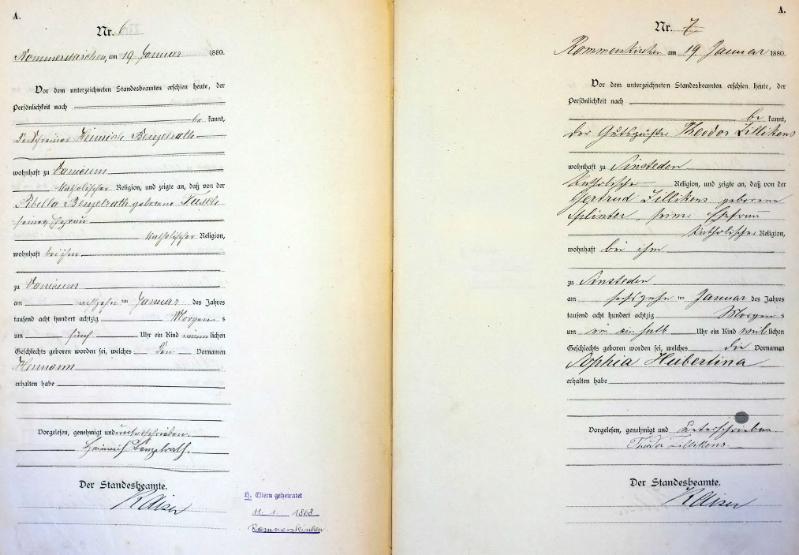 A.
Nr. 6
Rommerskirchen, am 19 Januar 1880.
Vor dem unterzeichneten Standesbeamten erschien heute, der
Persönlichkeit nach
be kannt,
Heinrich Benzelrath
wohnhaft zu
katholischer Religion, und zeigte an, daß von der
Sibilla Benzelrath geborene
seiner Ehefrau
katholischer Religion,
wohnhaft bei ihm
zu
am im Januar des Jahres
tausend acht hundert achtzig Morgens
um fünf Uhr ein Kind männlichen
Geschlechts geboren worden sei, welches den Vornamen
Hermann
erhalten habe
Vorgelesen, genehmigt und unterschrieben
Heinrich Benzelrath.
Der Standesbeamte.
Kaiser
Eltern geheiratet
11. 1. 1868
Rommerskirchen
A.
Nr. 7
Rommerskirchen am 19 Januar 1880.
Vor dem unterzeichneten Standesbeamten erschien heute, der
Persönlichkeit nach
be kannt,
der Theodor Zillikens
wohnhaft zu Sinsteden
katholischer Religion, und zeigte an, daß von der
Gertrud Zillikens geborene
Splinter seine Ehefrau
katholischer Religion,
wohnhaft bei ihm
zu Sinsteden
am sechszehn im Januar des Jahres
tausend acht hundert achtzig Morgens
um ein halb Uhr ein Kind weiblichen
Geschlechts geboren worden sei, welches die Vornamen
Sophia Hubertina
erhalten habe
Vorgelesen, genehmigt und unterschrieben
Theodor Zillikens
Der Standesbeamte.
Kaiser